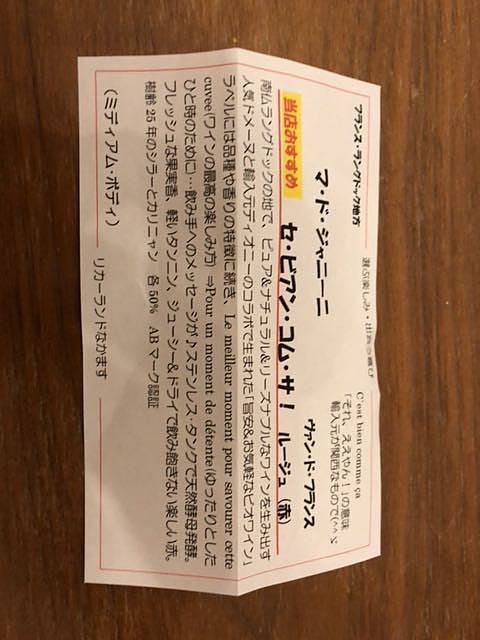 フランス・ラングドック地方
選ぶ楽しみ・出会う喜び
C'est bien comme ça
「それ、ええやん！」の意味
輸入元が関西なもので(^^ゞ
マ・ド・ジャニーニ
ヴァン・ド・フランス
当店おすすめ セ・ビアン・コム・サ！ ルージュ（赤）
南仏ラングドックの地で、ピュア&ナチュラル&リーズナブルなワインを生み出す
人気ドメーヌと輸入元ディオニーのコラボで生まれた「旨安&お気軽なビオワイン」
ラベルには品種や香りの特徴に続き、Le meilleur moment pour savourer cette
cuvee(ワインの最高の楽しみ方) ⇒Pour un moment de détente(ゆったりとした
ひと時のために…飲み手へのメッセージが♪ステンレス・タンクで天然酵母発酵。
フレッシュな果実香、軽いタンニン、ジューシー&ドライで飲み飽きない楽しい赤。
樹齢25年のシラーとカリニャン 各50% ABマーク認証
（ミディアム・ボディ）
リカーランドなかます